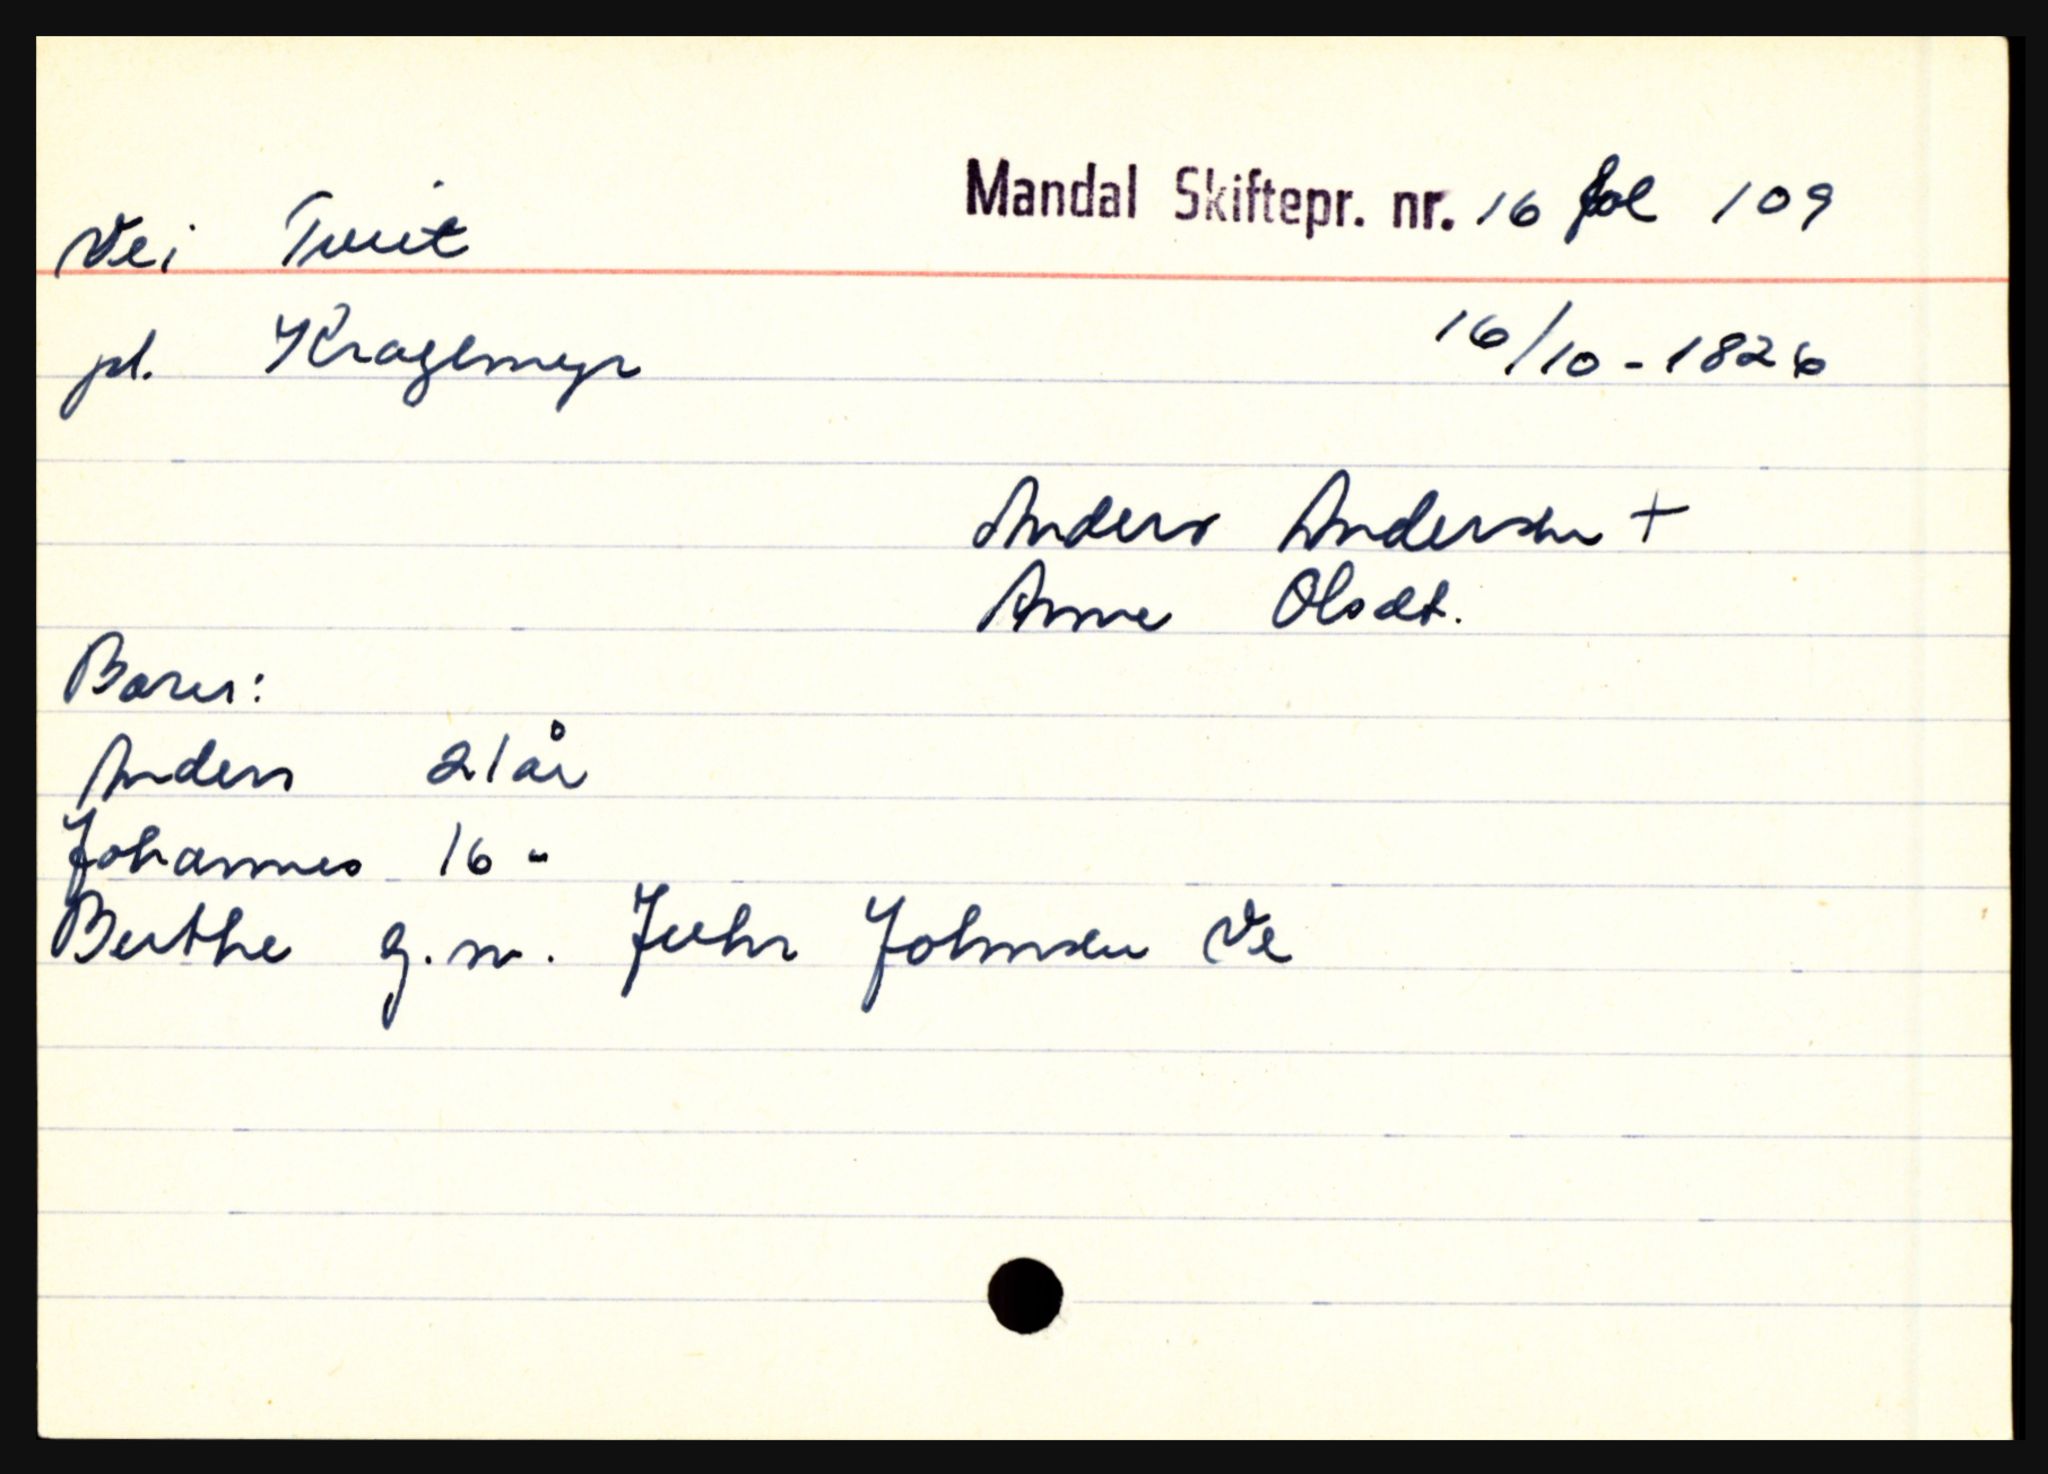 Vei Tveit Mandal Skiftepr. nr. 16 fol 109
pl. Kragemyr 16/10-1826
Anders Andersen +
Anne Olsdt.
Barn:
Anders 21 år
Johannes 16 "
Berthe g.m. Johnsen Ve